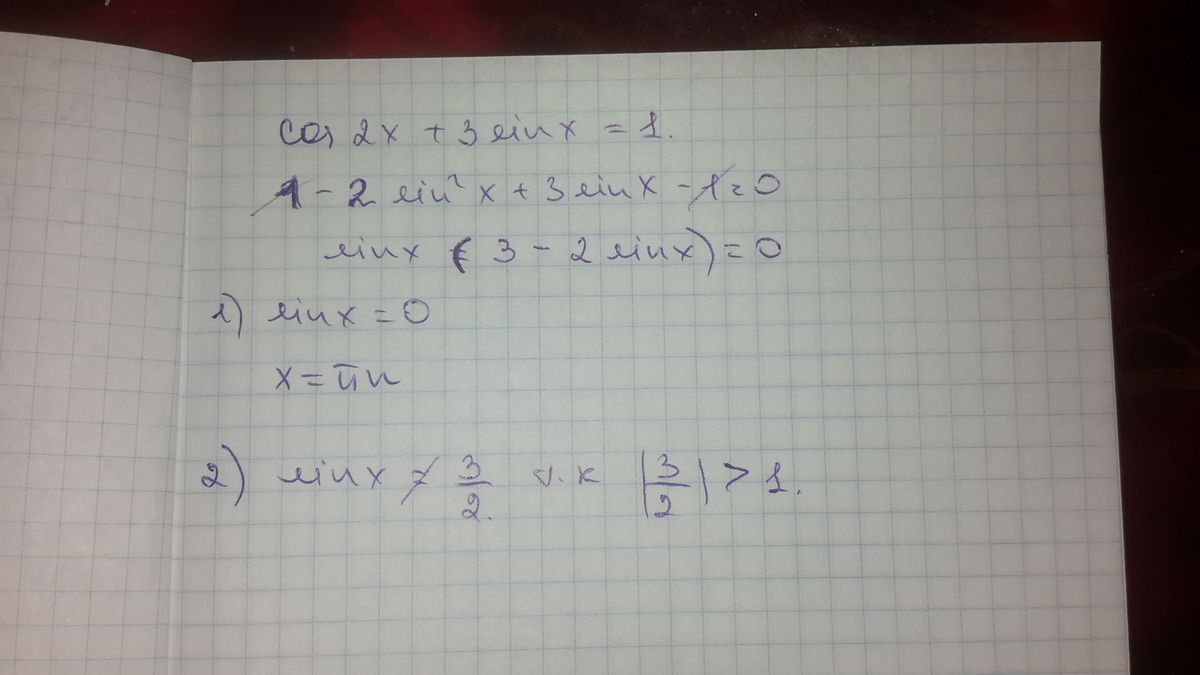 cos 2x + 3 sin x = 1.
1 - 2 sin² x + 3 sin x - 1 = 0
sin x (3 - 2 sin x) = 0
1) sin x = 0
x = πn
2) sin x ≠ 3/2. т.к |3/2| > 1.